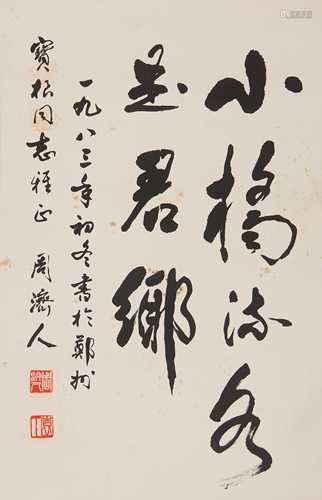 小橋流水
是君鄉
一九八三年初冬書於鄭州
寶根同志雅正 周濟人